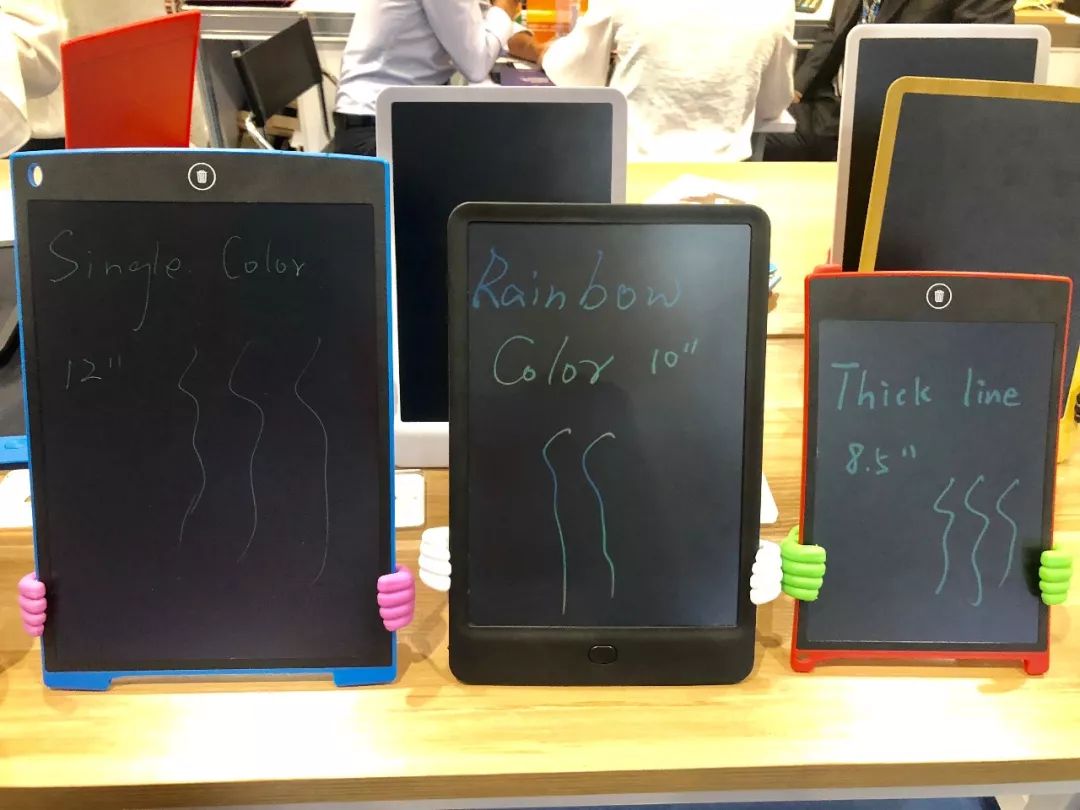 Single Color
12"
Rainbow
Color 10"
Thick line
8.5"